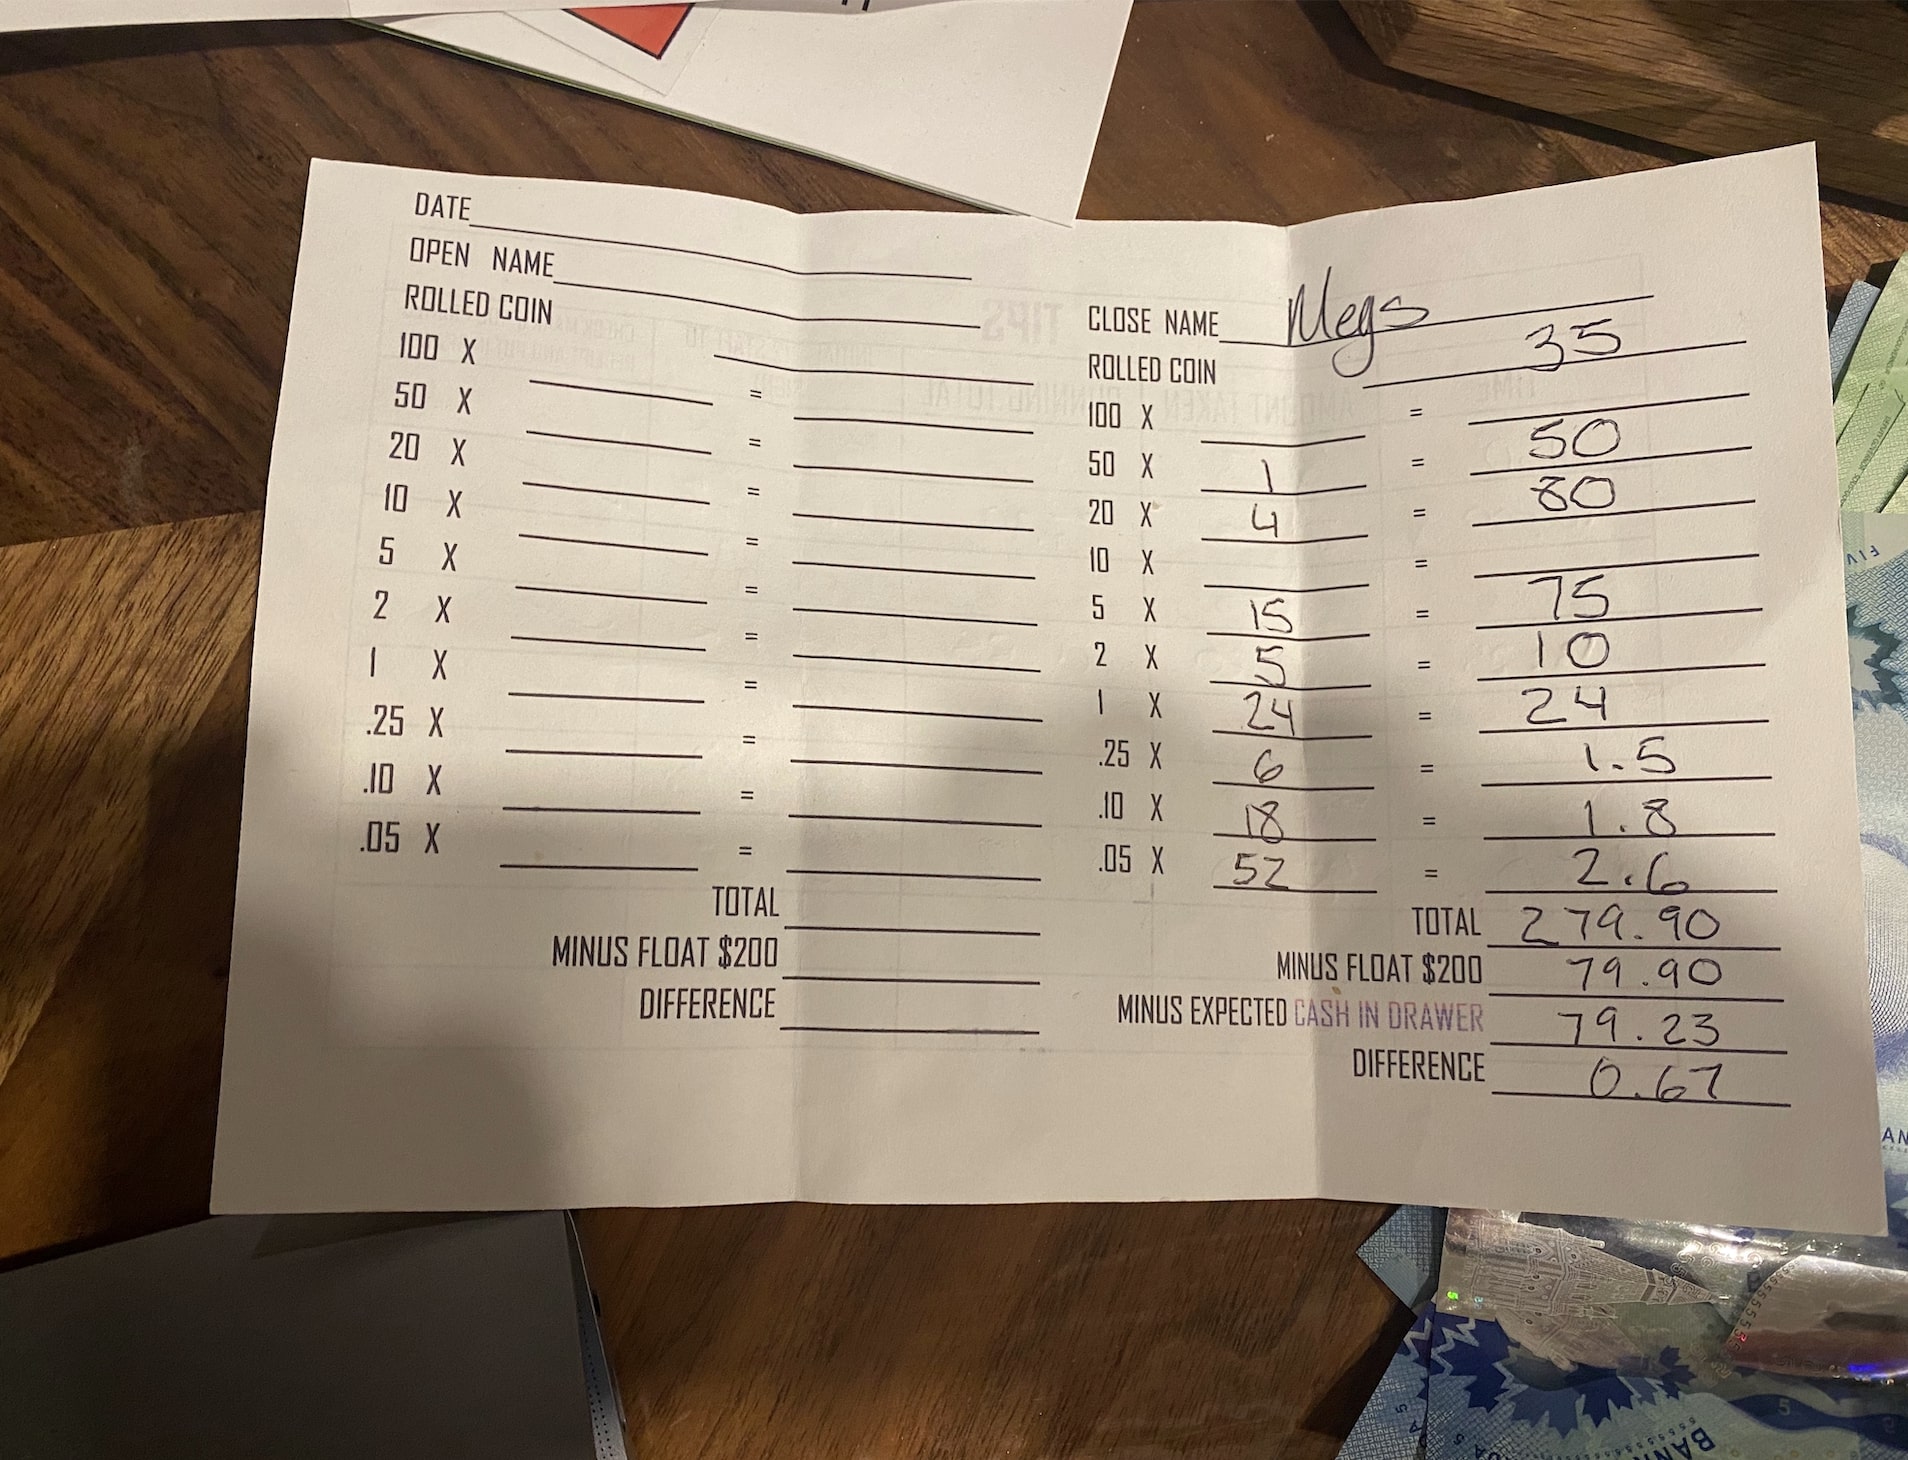 DATE
OPEN NAME
ROLLED COIN
100 X =
50 X =
20 X =
10 X =
5 X =
2 X =
1 X =
.25 X =
.10 X =
.05 X =
TOTAL
MINUS FLOAT $200
DIFFERENCE
CLOSE NAME Megs
ROLLED COIN 35
100 X =
50 X 1 = 50
20 X 4 = 80
10 X =
5 X 15 = 75
2 X 5 = 10
1 X 24 = 24
.25 X 6 = 1.5
.10 X 18 = 1.8
.05 X 52 = 2.6
TOTAL 279.90
MINUS FLOAT $200 79.90
MINUS EXPECTED CASH IN DRAWER 79.23
DIFFERENCE 0.67
TIPS
AMOUNT TAKEN
RUNNING TOTAL
TIME